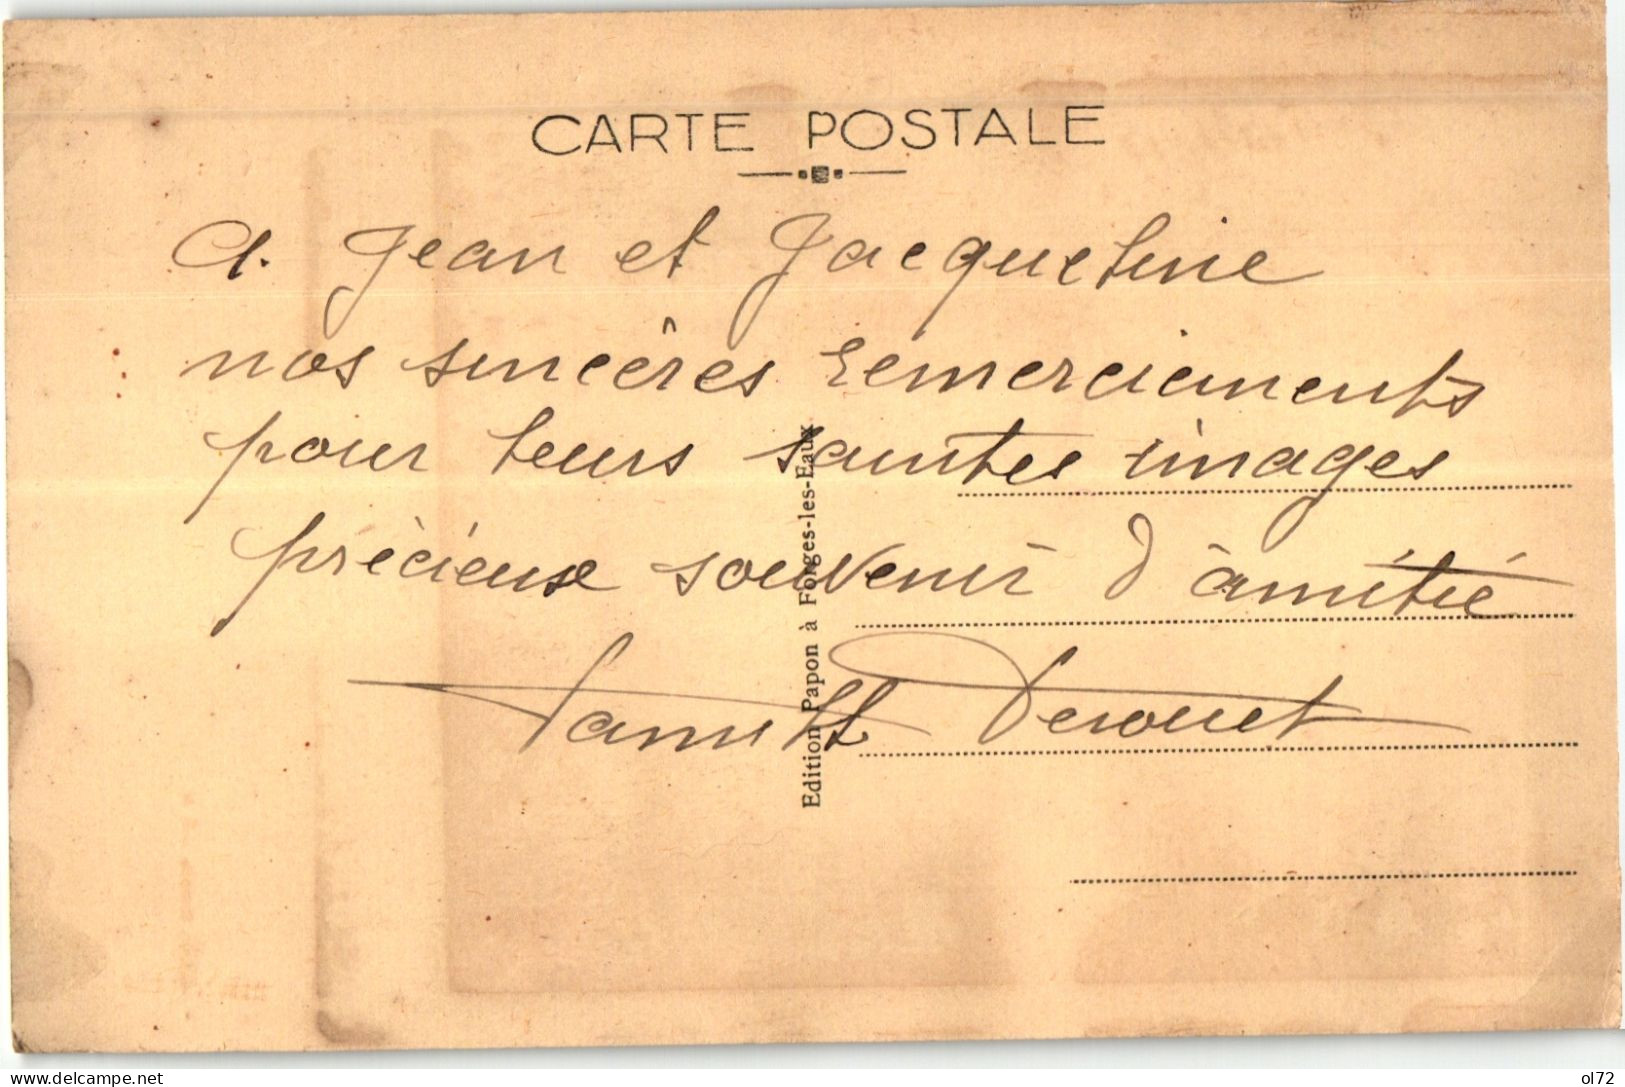 CARTE POSTALE
A. Jean et Jacqueline
nos sincères remerciements
pour leurs saintes images
précieux souvenir d'amitié
Famille Derouet
Edition Papon à Forges-les-Eaux
www.delcampe.net
ol72